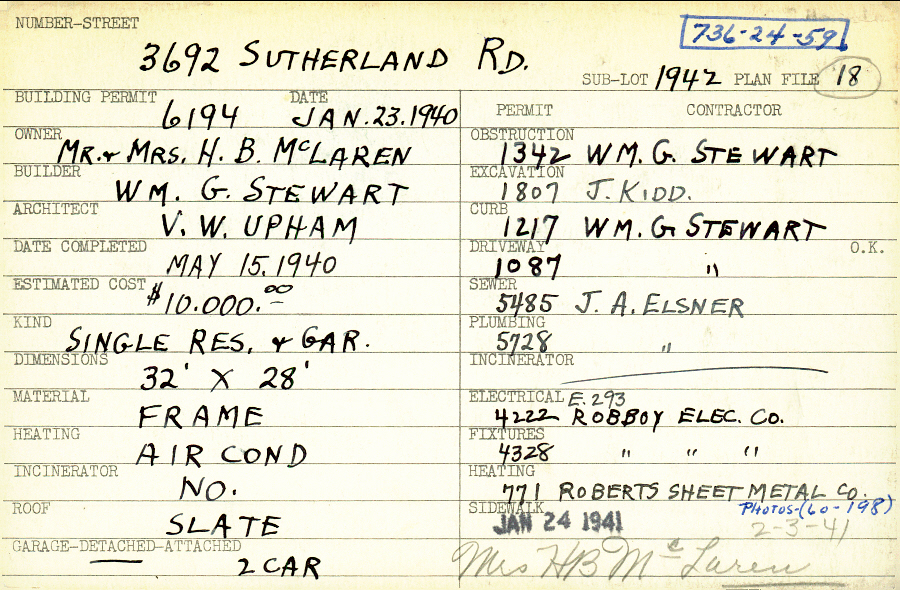 NUMBER-STREET
736-24-59
3692 SUTHERLAND RD.
SUB-LOT 1942 PLAN FILE 18
BUILDING PERMIT DATE
6194 JAN. 23. 1940
OWNER
MR. & MRS. H. B. McLAREN
BUILDER
WM. G. STEWART
ARCHITECT
V. W. UPHAM
DATE COMPLETED
MAY 15. 1940
ESTIMATED COST
$10.000.00
KIND
SINGLE RES. & GAR.
DIMENSIONS
32' X 28'
MATERIAL
FRAME
HEATING
AIR COND
INCINERATOR
NO.
ROOF
SLATE
GARAGE-DETACHED-ATTACHED
2 CAR
PERMIT CONTRACTOR
OBSTRUCTION
1342 WM. G. STEWART
EXCAVATION
1807 J. KIDD.
CURB
1217 WM. G STEWART
DRIVEWAY O.K.
1087 "
SEWER
5485 J. A. ELSNER
PLUMBING
5728 "
INCINERATOR
ELECTRICAL E. 293
4222 ROBBOY ELEC. CO.
FIXTURES
4328 " " "
HEATING
771 ROBERTS SHEET METAL CO.
SIDEWALK PHOTOS-(60-198)
JAN 24 1941 2-3-41
Mrs H B McLaren